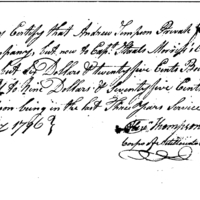 Certify that Andrew Simpson Private
Company, but now to Capt. Steals
but Six Dollars & twentyfive Cents Bou
to Nine Dollars & Seventyfive Cent
being in the last Three Years Service
1796
Thompson
Corps of Artillerists